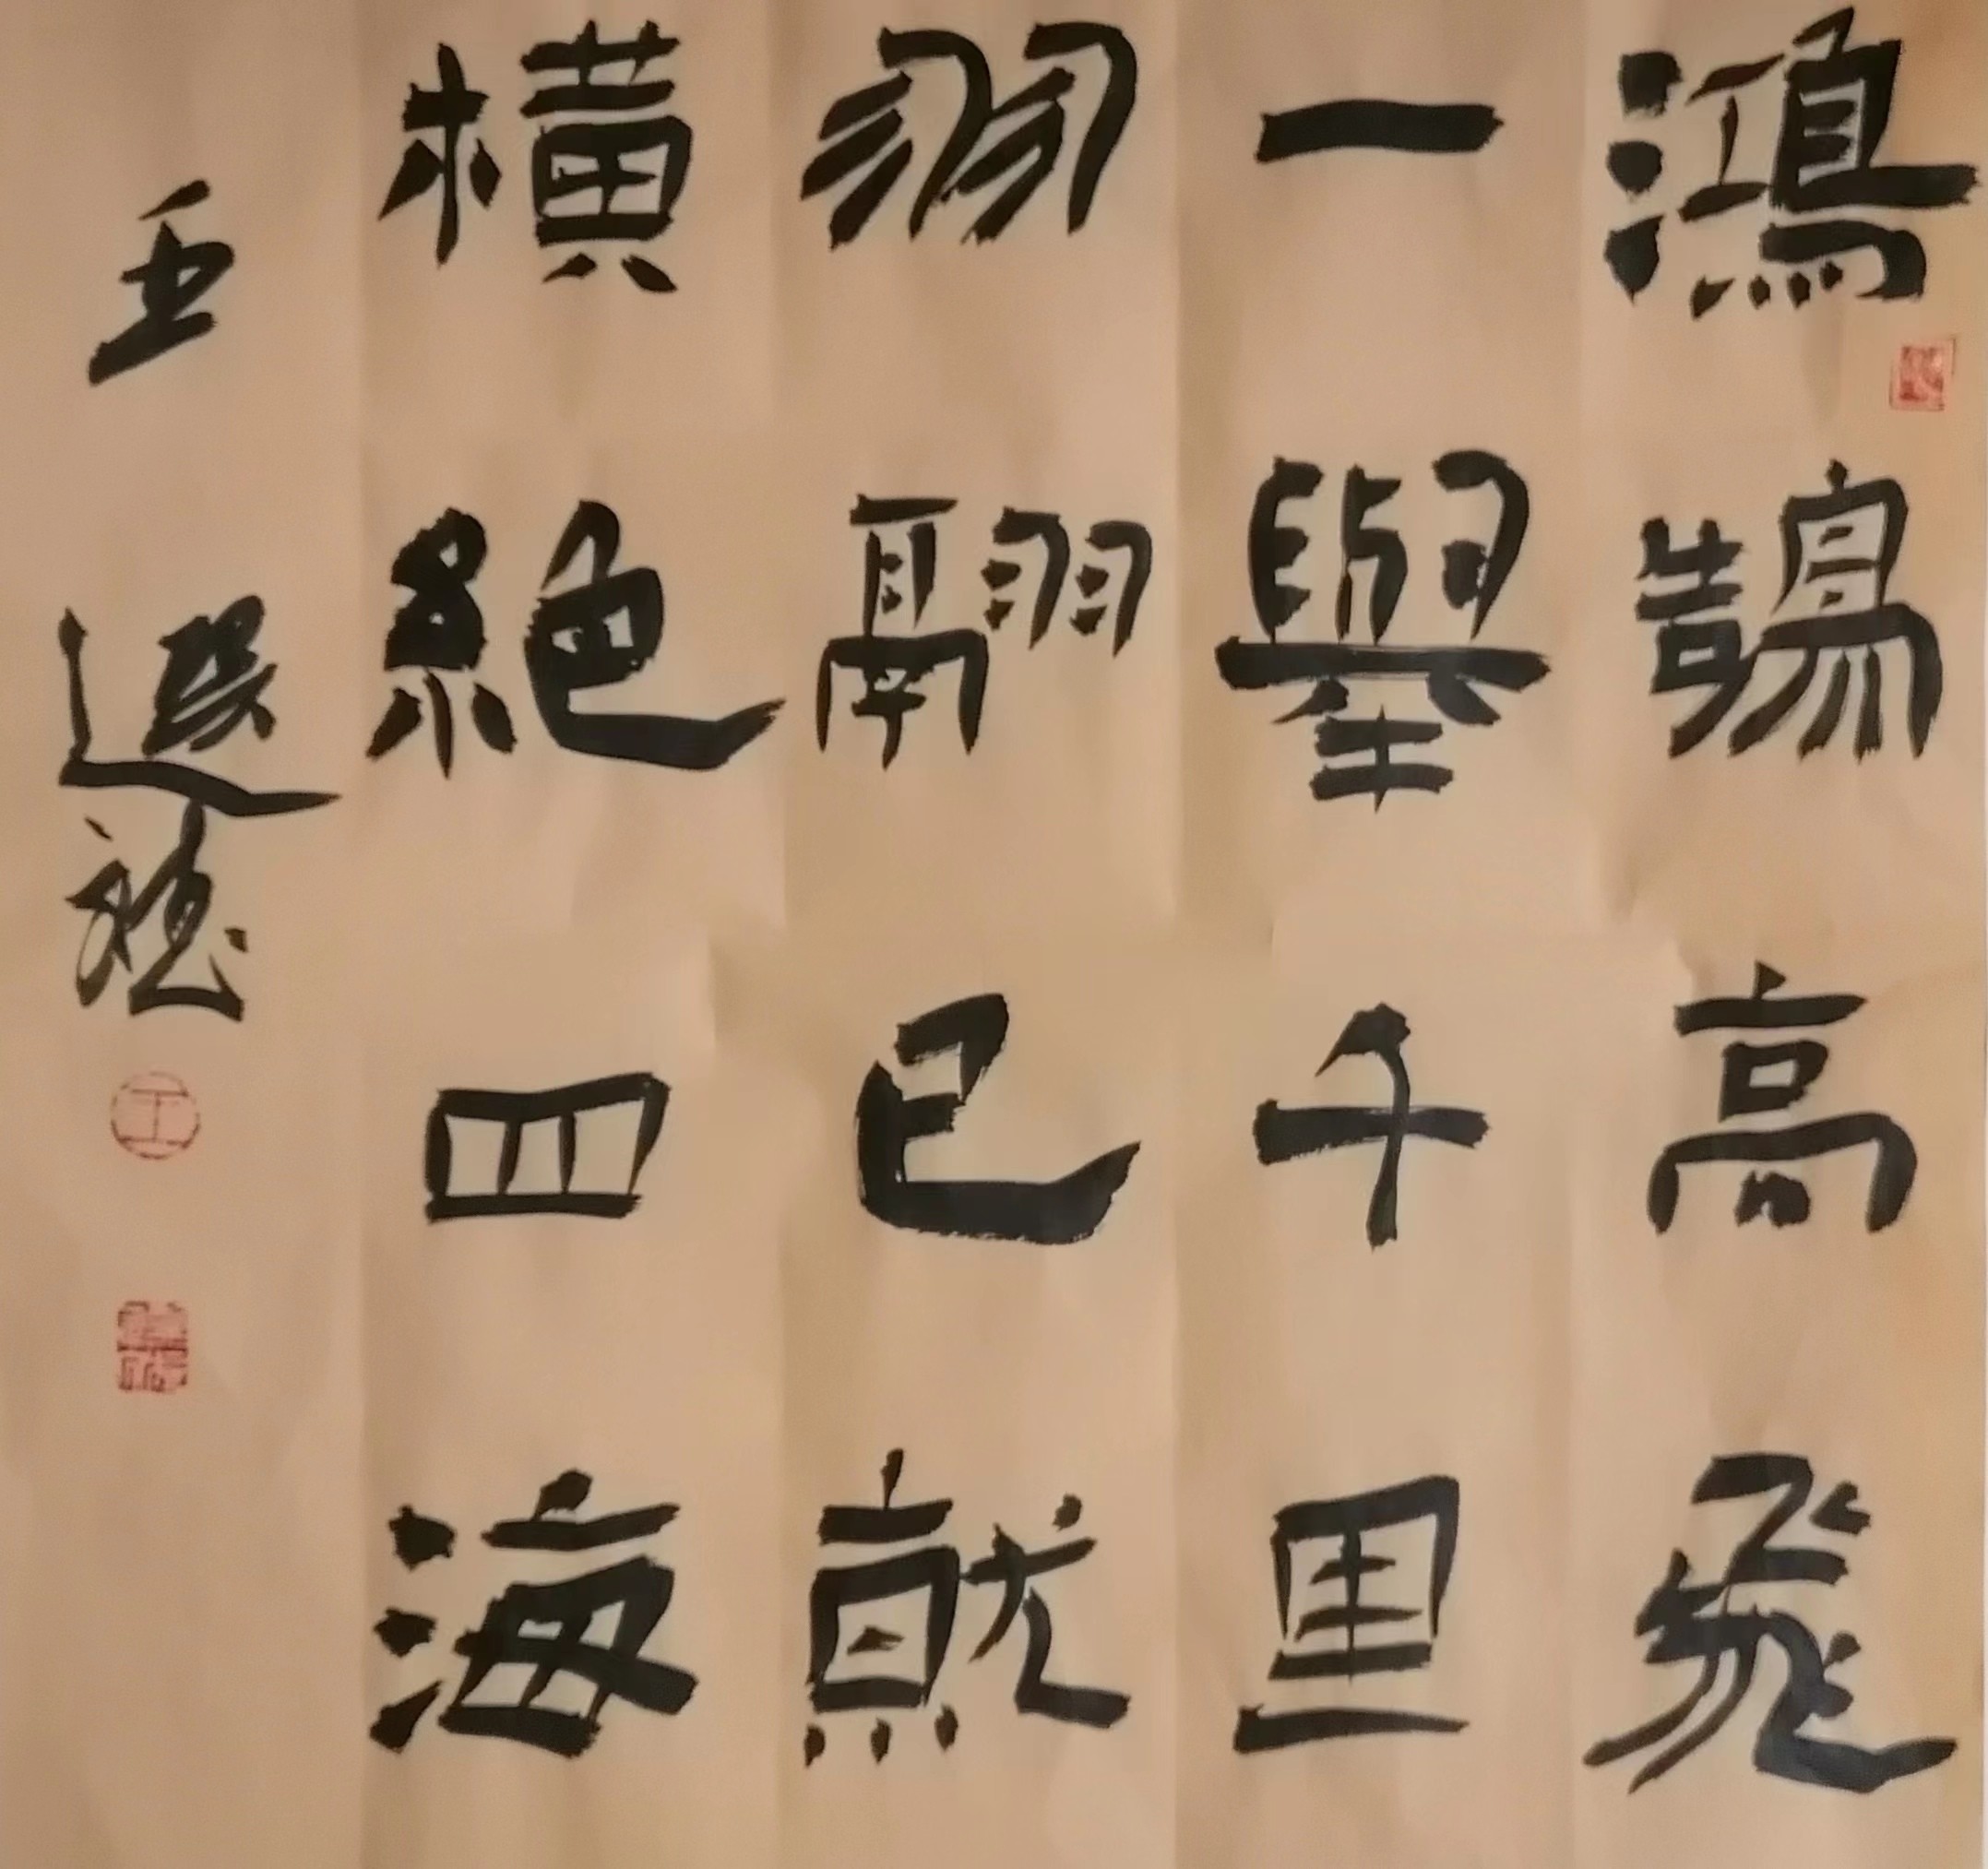 鴻鵠高飛
一舉千里
羽翮已就
橫絕四海
王選